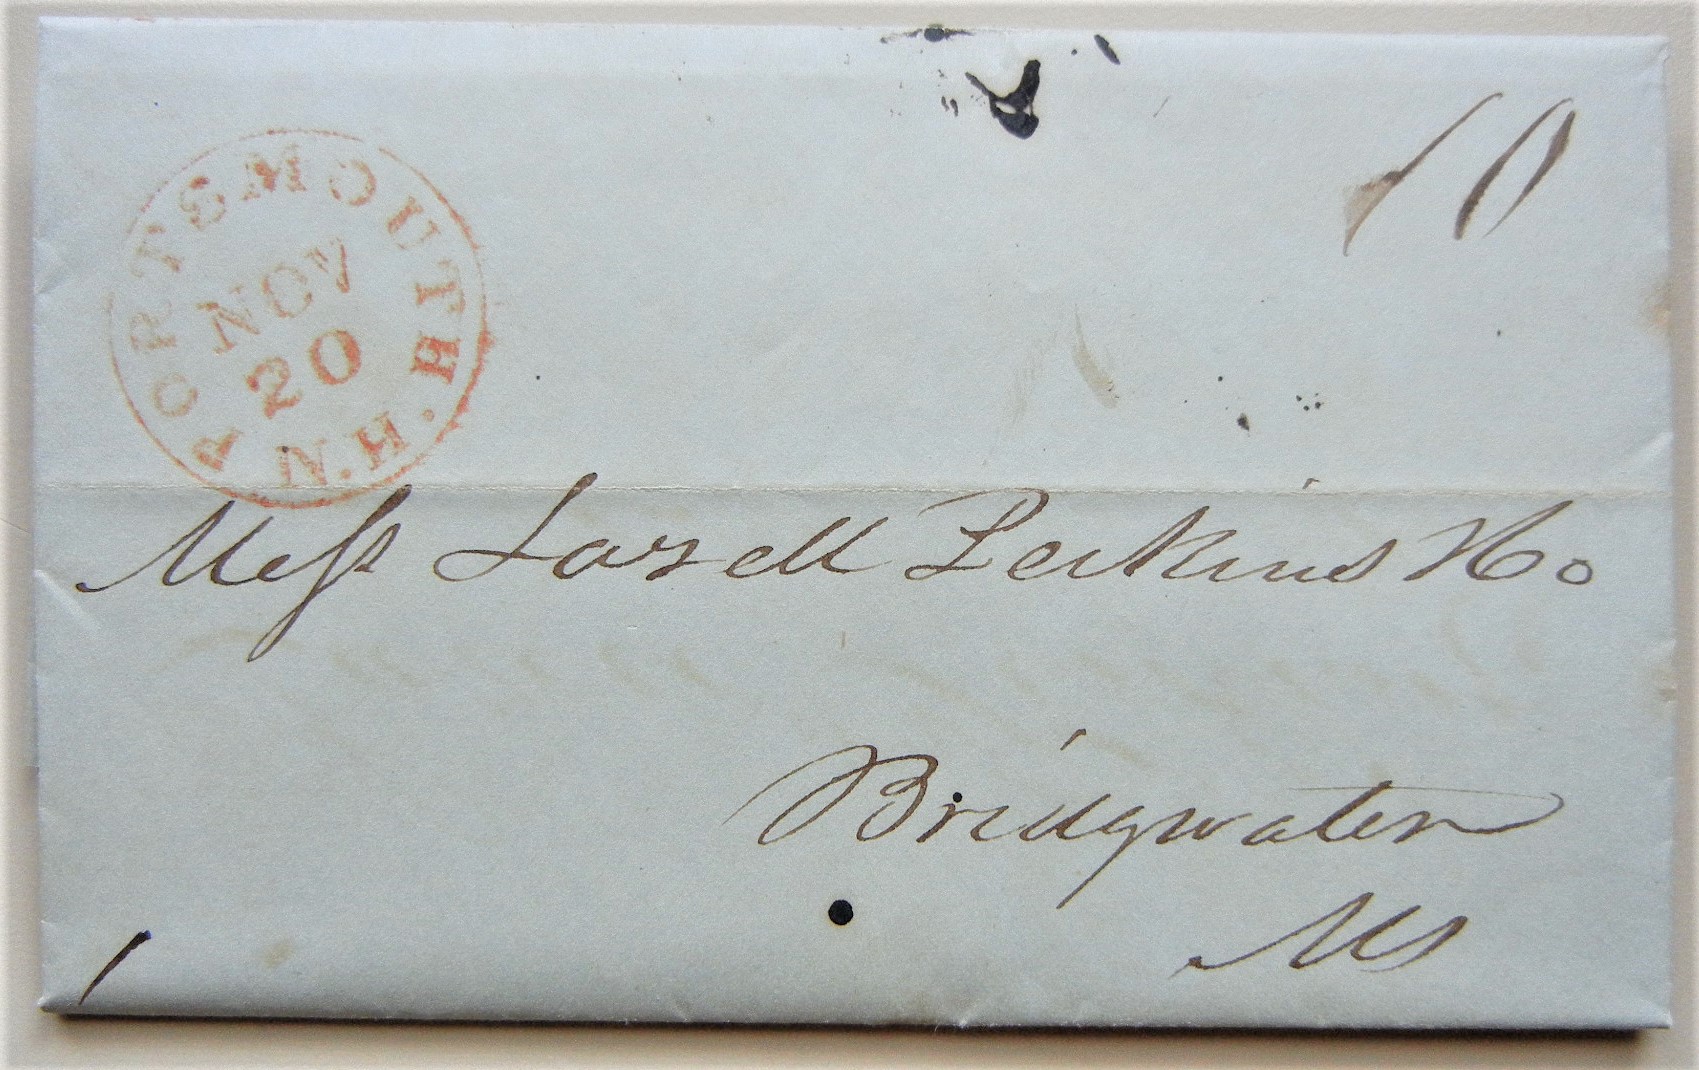 PORTSMOUTH. N.H.
NOV
20
10
Mess Lazell Perkins & Co
Bridgwater
Ms